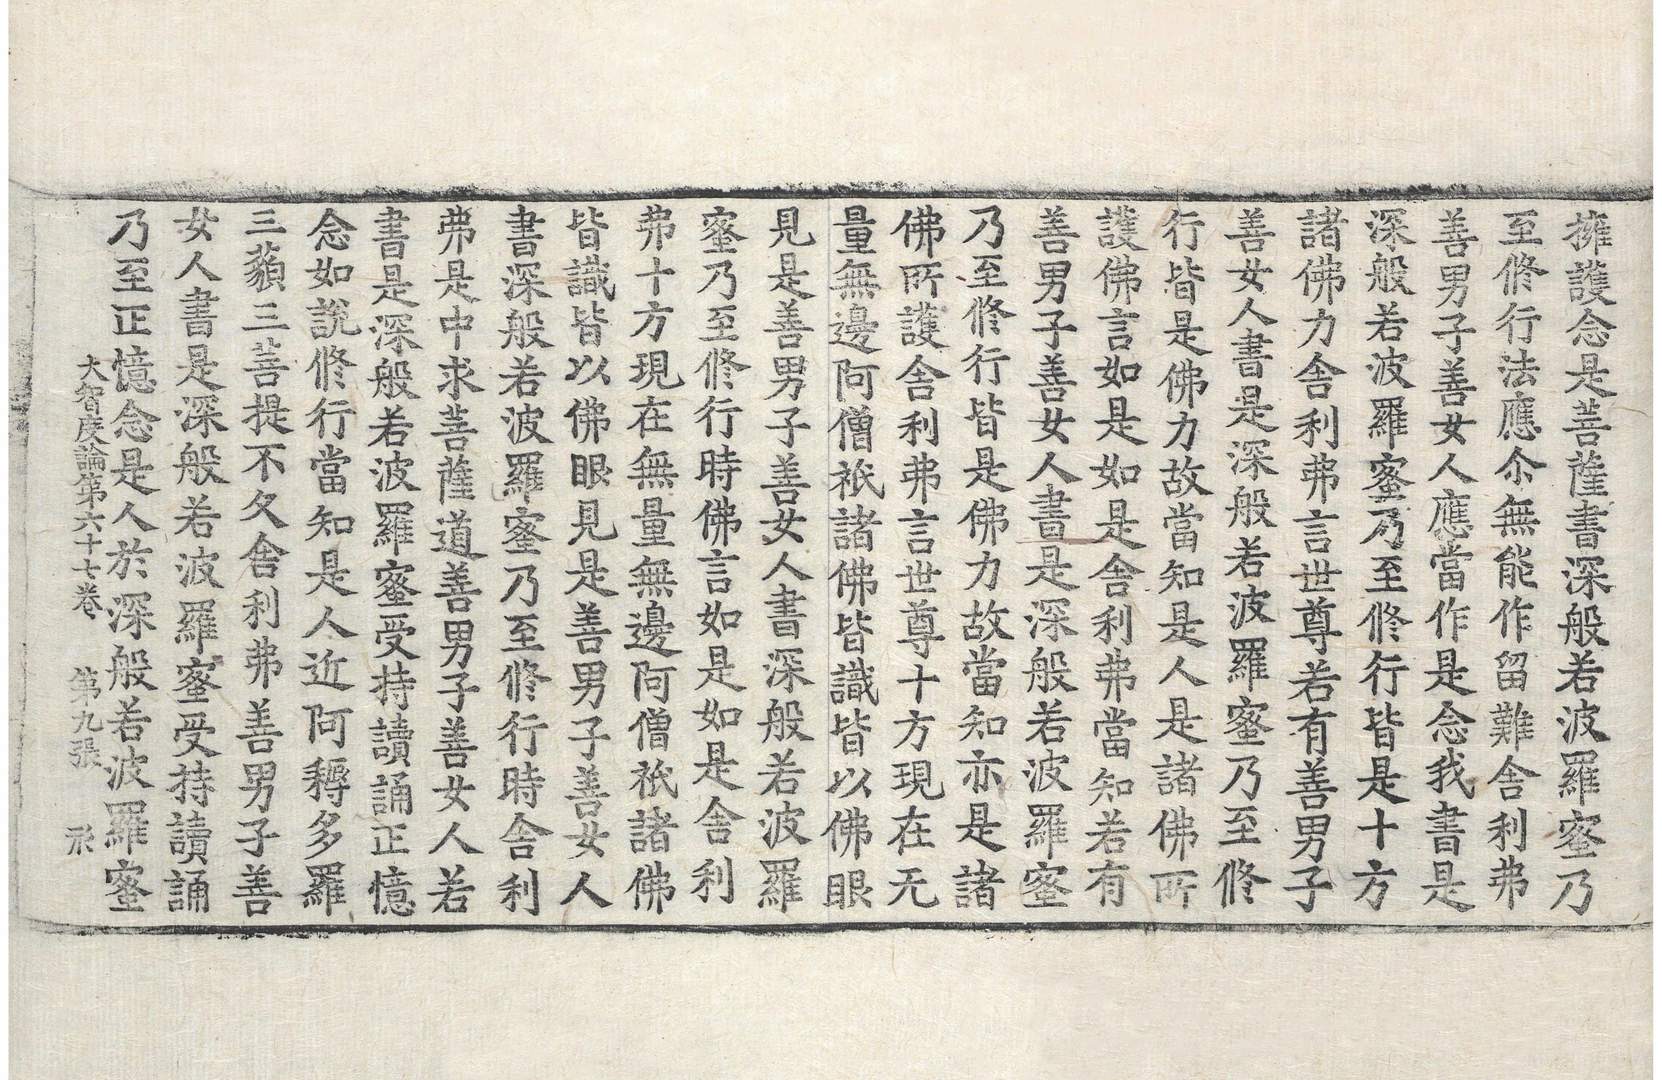 擁護念是菩薩書深般若波羅蜜乃
至修行法應尒無能作留難舍利弗
善男子善女人應當作是念我書是
深般若波羅蜜乃至修行皆是十方
諸佛力舍利弗言世尊若有善男子
善女人書是深般若波羅蜜乃至修
行皆是佛力故當知是人是諸佛所
護佛言如是如是舍利弗當知若有
善男子善女人書是深般若波羅蜜
乃至修行皆是佛力故當知亦是諸
佛所護舍利弗言世尊十方現在无
量無邊阿僧祇諸佛皆識皆以佛眼
見是善男子善女人書深般若波羅
蜜乃至修行時佛言如是如是舍利
弗十方現在無量無邊阿僧祇諸佛
皆識皆以佛眼見是善男子善女人
書深般若波羅蜜乃至修行時舍利
弗是中求菩薩道善男子善女人若
書是深般若波羅蜜受持讀誦正憶
念如說修行當知是人近阿耨多羅
三藐三菩提不久舍利弗善男子善
女人書是深般若波羅蜜受持讀誦
乃至正憶念是人於深般若波羅蜜
大智度論第六十七卷 第九張